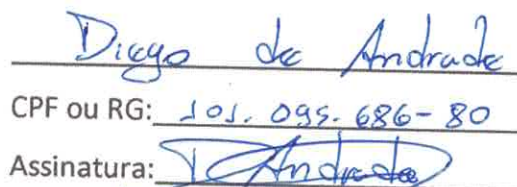 Diego de Andrade
CPF ou RG: 101.095.686-80
Assinatura: D Andrade